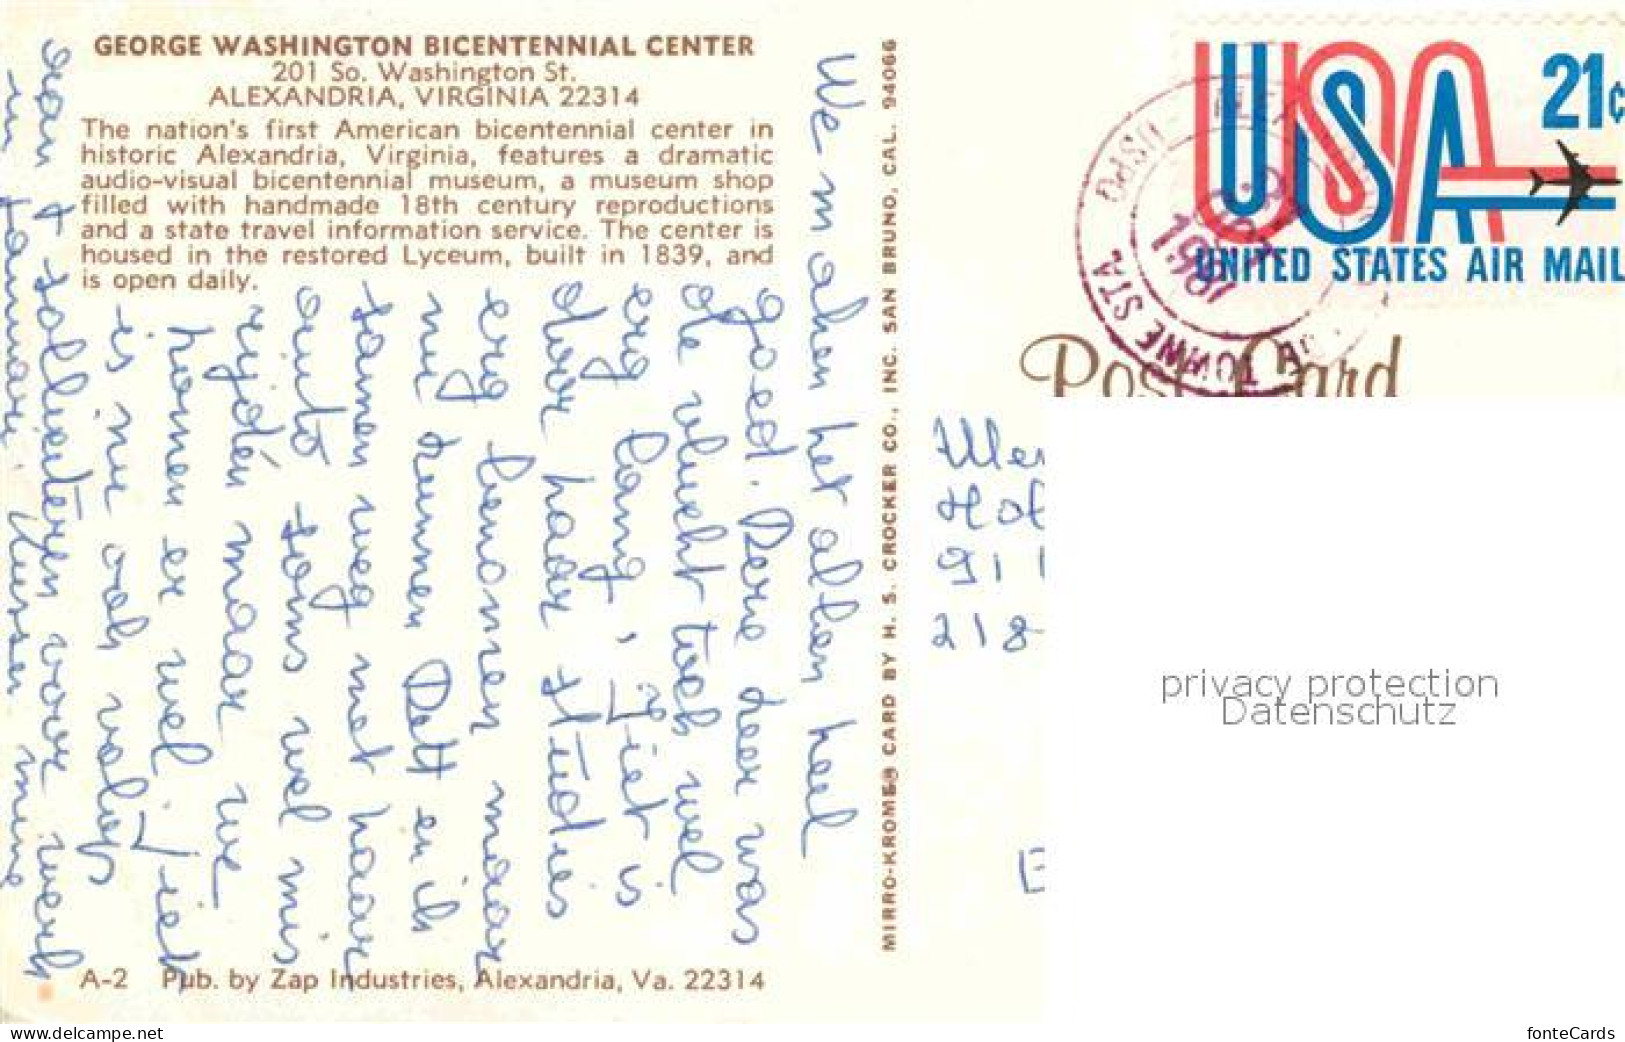 GEORGE WASHINGTON BICENTENNIAL CENTER
201 So. Washington St.
ALEXANDRIA, VIRGINIA 22314
The nation's first American bicentennial center in
historic Alexandria, Virginia, features a dramatic
audio-visual bicentennial museum, a museum shop
filled with handmade 18th century reproductions
and a state travel information service. The center is
housed in the restored Lyceum, built in 1839, and
is open daily.
We maken het allen heel
goed. Deze keer was
de vlucht toch wel
erg lang, Jiet is
door haar studies
erg bezonen maar
nu kunnen Dett en ik
samen weg met haar
auto soms wel mis
rijden maar we
komen er wel. Jiek
is nu ook volop
aan t solliciteren voor werk
in januari.
A-2 Pub. by Zap Industries, Alexandria, Va. 22314
MIRRO-KROME® CARD BY H. S. CROCKER CO., INC. SAN BRUNO, CAL. 94066
USA 21c
UNITED STATES AIR MAIL
USPO
TOWNE STA.
Post Card
Hof
911
218
privacy protection
Datenschutz
www.delcampe.net
fonteCards